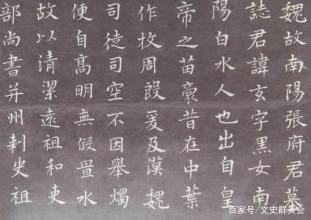 魏故南陽張府君墓
誌君諱玄字黑女南
陽白水人也出自皇
帝之苗裔昔在中葉
作牧周殷爰及漢魏
司徒司空不因舉燭
便自高明無假置水
故以清潔遠祖和吏
部尚書并州刺史祖
百家号/文史群英会